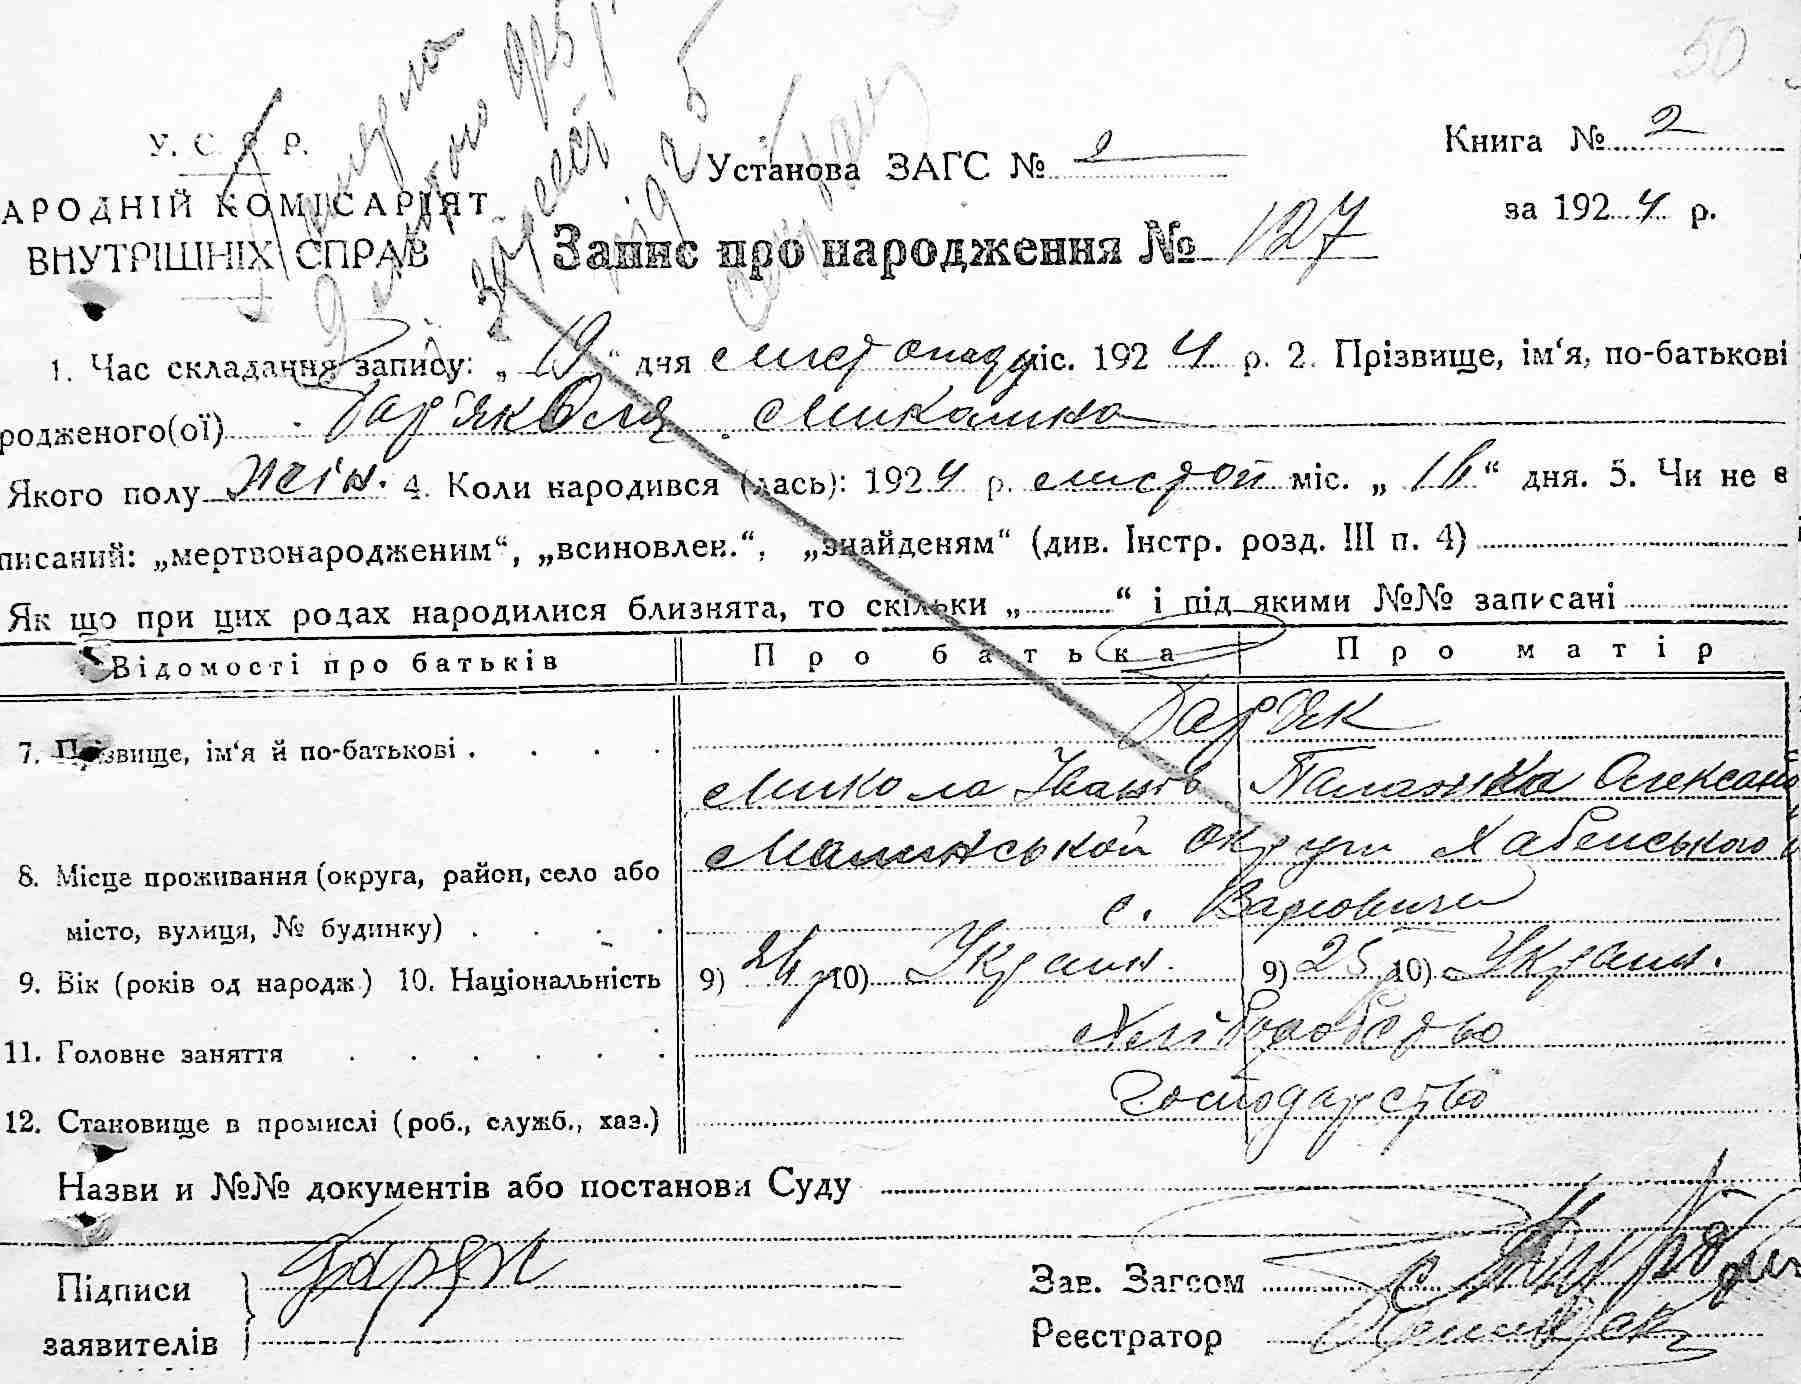 50
У. С. Р. Р.
Померла
Книга № 2
Установа ЗАГС № 2
АРОДНІЙ КОМІСАРІЯТ
за 1924 р.
ВНУТРІШНІХ СПРАВ
Запис про народження № 127
1. Час складання запису: „19“ дня листопад міс. 1924 р. 2. Прізвище, ім‘я, по-батькові
родженого(ої) Бар'як Оля Миколина
Якого полу жін. 4. Коли народився (лась): 1924 р. листоп міс. „16“ дня. 5. Чи не є
писаний: „мертвонародженим“, „всиновлен.“, „знайденям“ (див. Інстр. розд. III п. 4)
Як що при цих родах народилися близнята, то скільки „ “ і під якими №№ записані
Відомості про батьків Про батька Про матір
7. Прізвище, ім‘я й по-батькові Бар'як
Микола Іванів Палажка Олексан
8. Місце проживання (округа, район, село або Малинської округи Хабенського
місто, вулиця, № будинку) с. Варовичи
9. Вік (років од народж.) 10. Національність 9) 24 р 10) Украин. 9) 25 10) Украин.
11. Головне заняття Хліборобство
12. Становище в промислі (роб., служб., хаз.) Господарство
Назви и №№ документів або постанови Суду
Підписи Баряк
заявителів
Зав. Загсом
Реєстратор